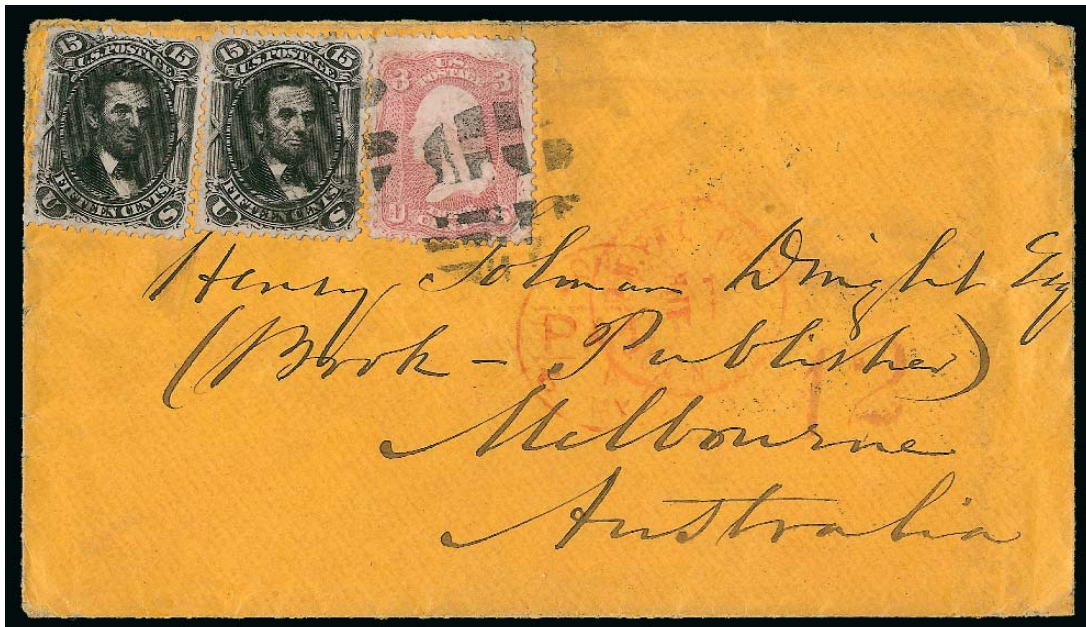 15 15
U.S. POSTAGE
FIFTEEN CENTS
U S
15 15
U.S. POSTAGE
FIFTEEN CENTS
U S
U.S.
POSTAGE
3 3
Henry Tolman Dwight Esq
(Book - Publisher)
Melbourne
Australia
12